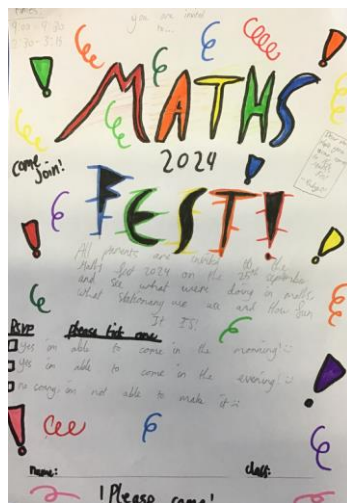 you are invited
to...
MATHS
2024
come
join!
FEST!
All parents are invited to the
Maths fest 2024 on the 25th september
and see what were doing in maths
what stationary we use and How fun
It IS!
RSVP please tick one
yes im able to come in the morning! :)
yes im able to come in the evening! :)
no sorry, im not able to make it :(
name: class:
! Please come!